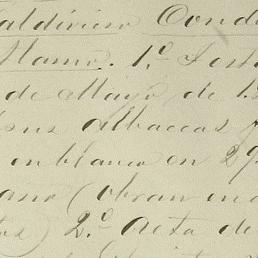 aldivieso Conde
Alamo. 1.º Testa
de Mayo de 18
sus albaceas
en blanco en 29
ano (obran en
tos) 2.º Acta de